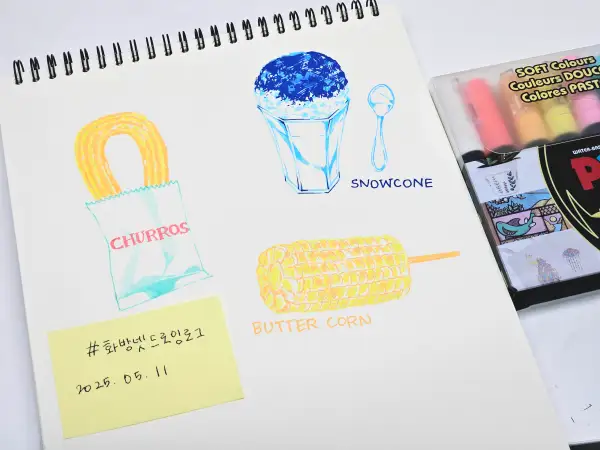 CHURROS
SNOWCONE
BUTTER CORN
#화방넷드로잉로그
2025.05.11
SOFT Colours
Couleurs DOUC
Colores PAST
WATER-BA